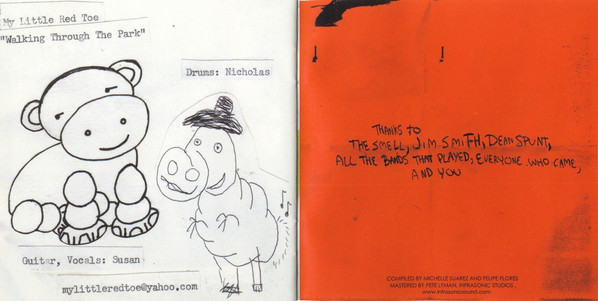 My Little Red Toe
"Walking Through The Park"
Drums: Nicholas
Guitar, Vocals: Susan
mylittleredtoe@yahoo.com
THANKS to
THE SMELL, JIM SMIFH, DEAN SPUNT,
ALL THE BANDS THAT PLAYED, EVERYONE WHO CAME,
AND YOU
COMPILED BY MICHELLE SUAREZ AND FELIPE FLORES
MASTERED BY PETE LYMAN, INFRASONIC STUDIOS,
www.infrasonicsound.com